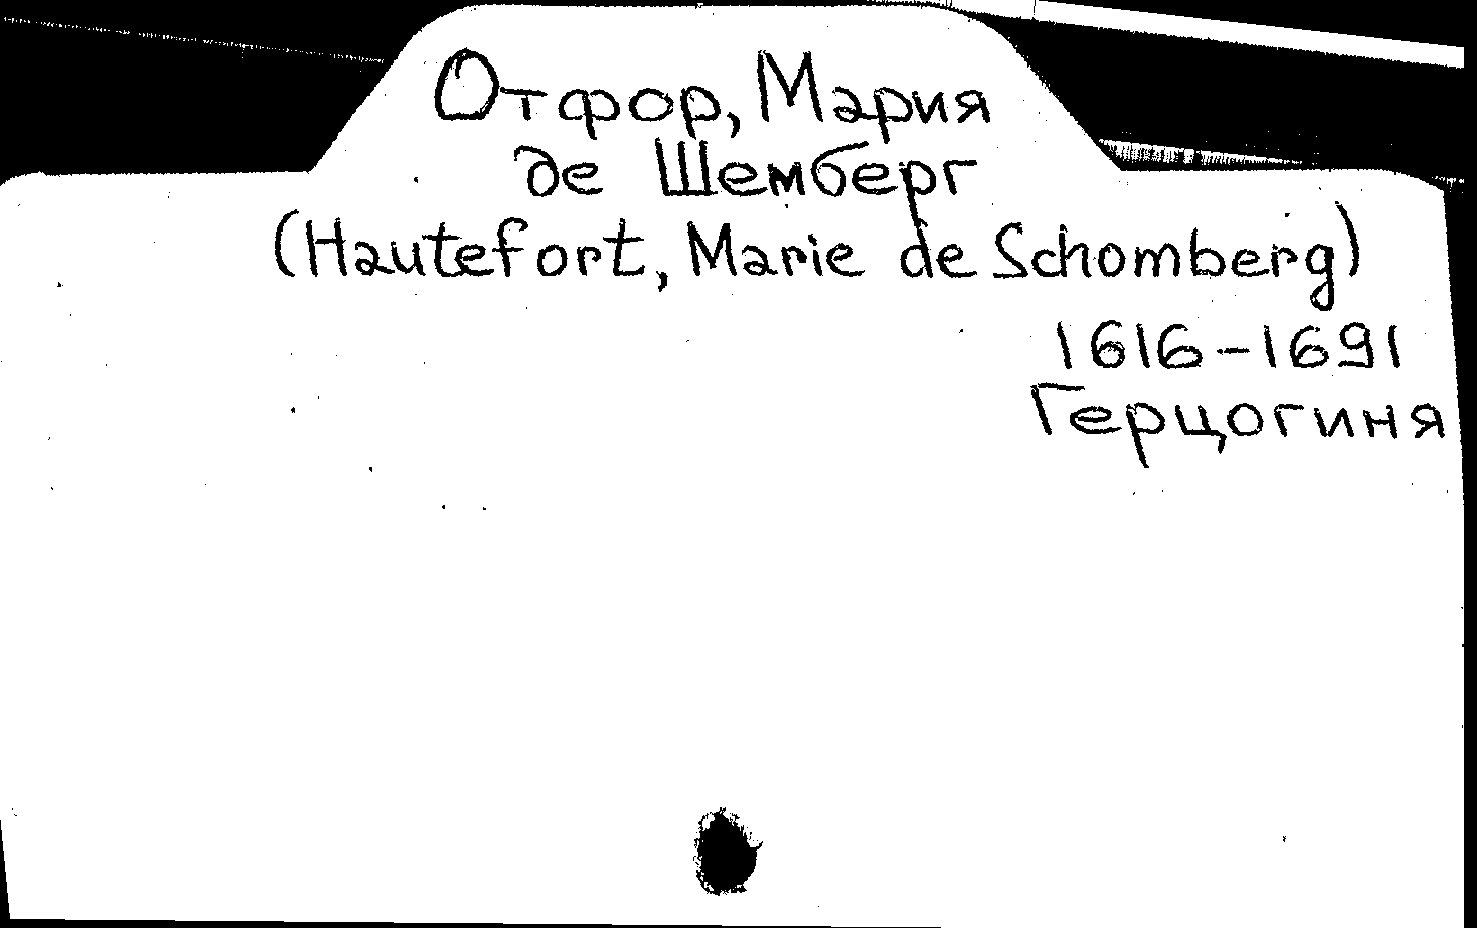 Отфор, Мария
де Шемберг
(Hautefort, Marie de Schomberg)
1616-1691
Герцогиня